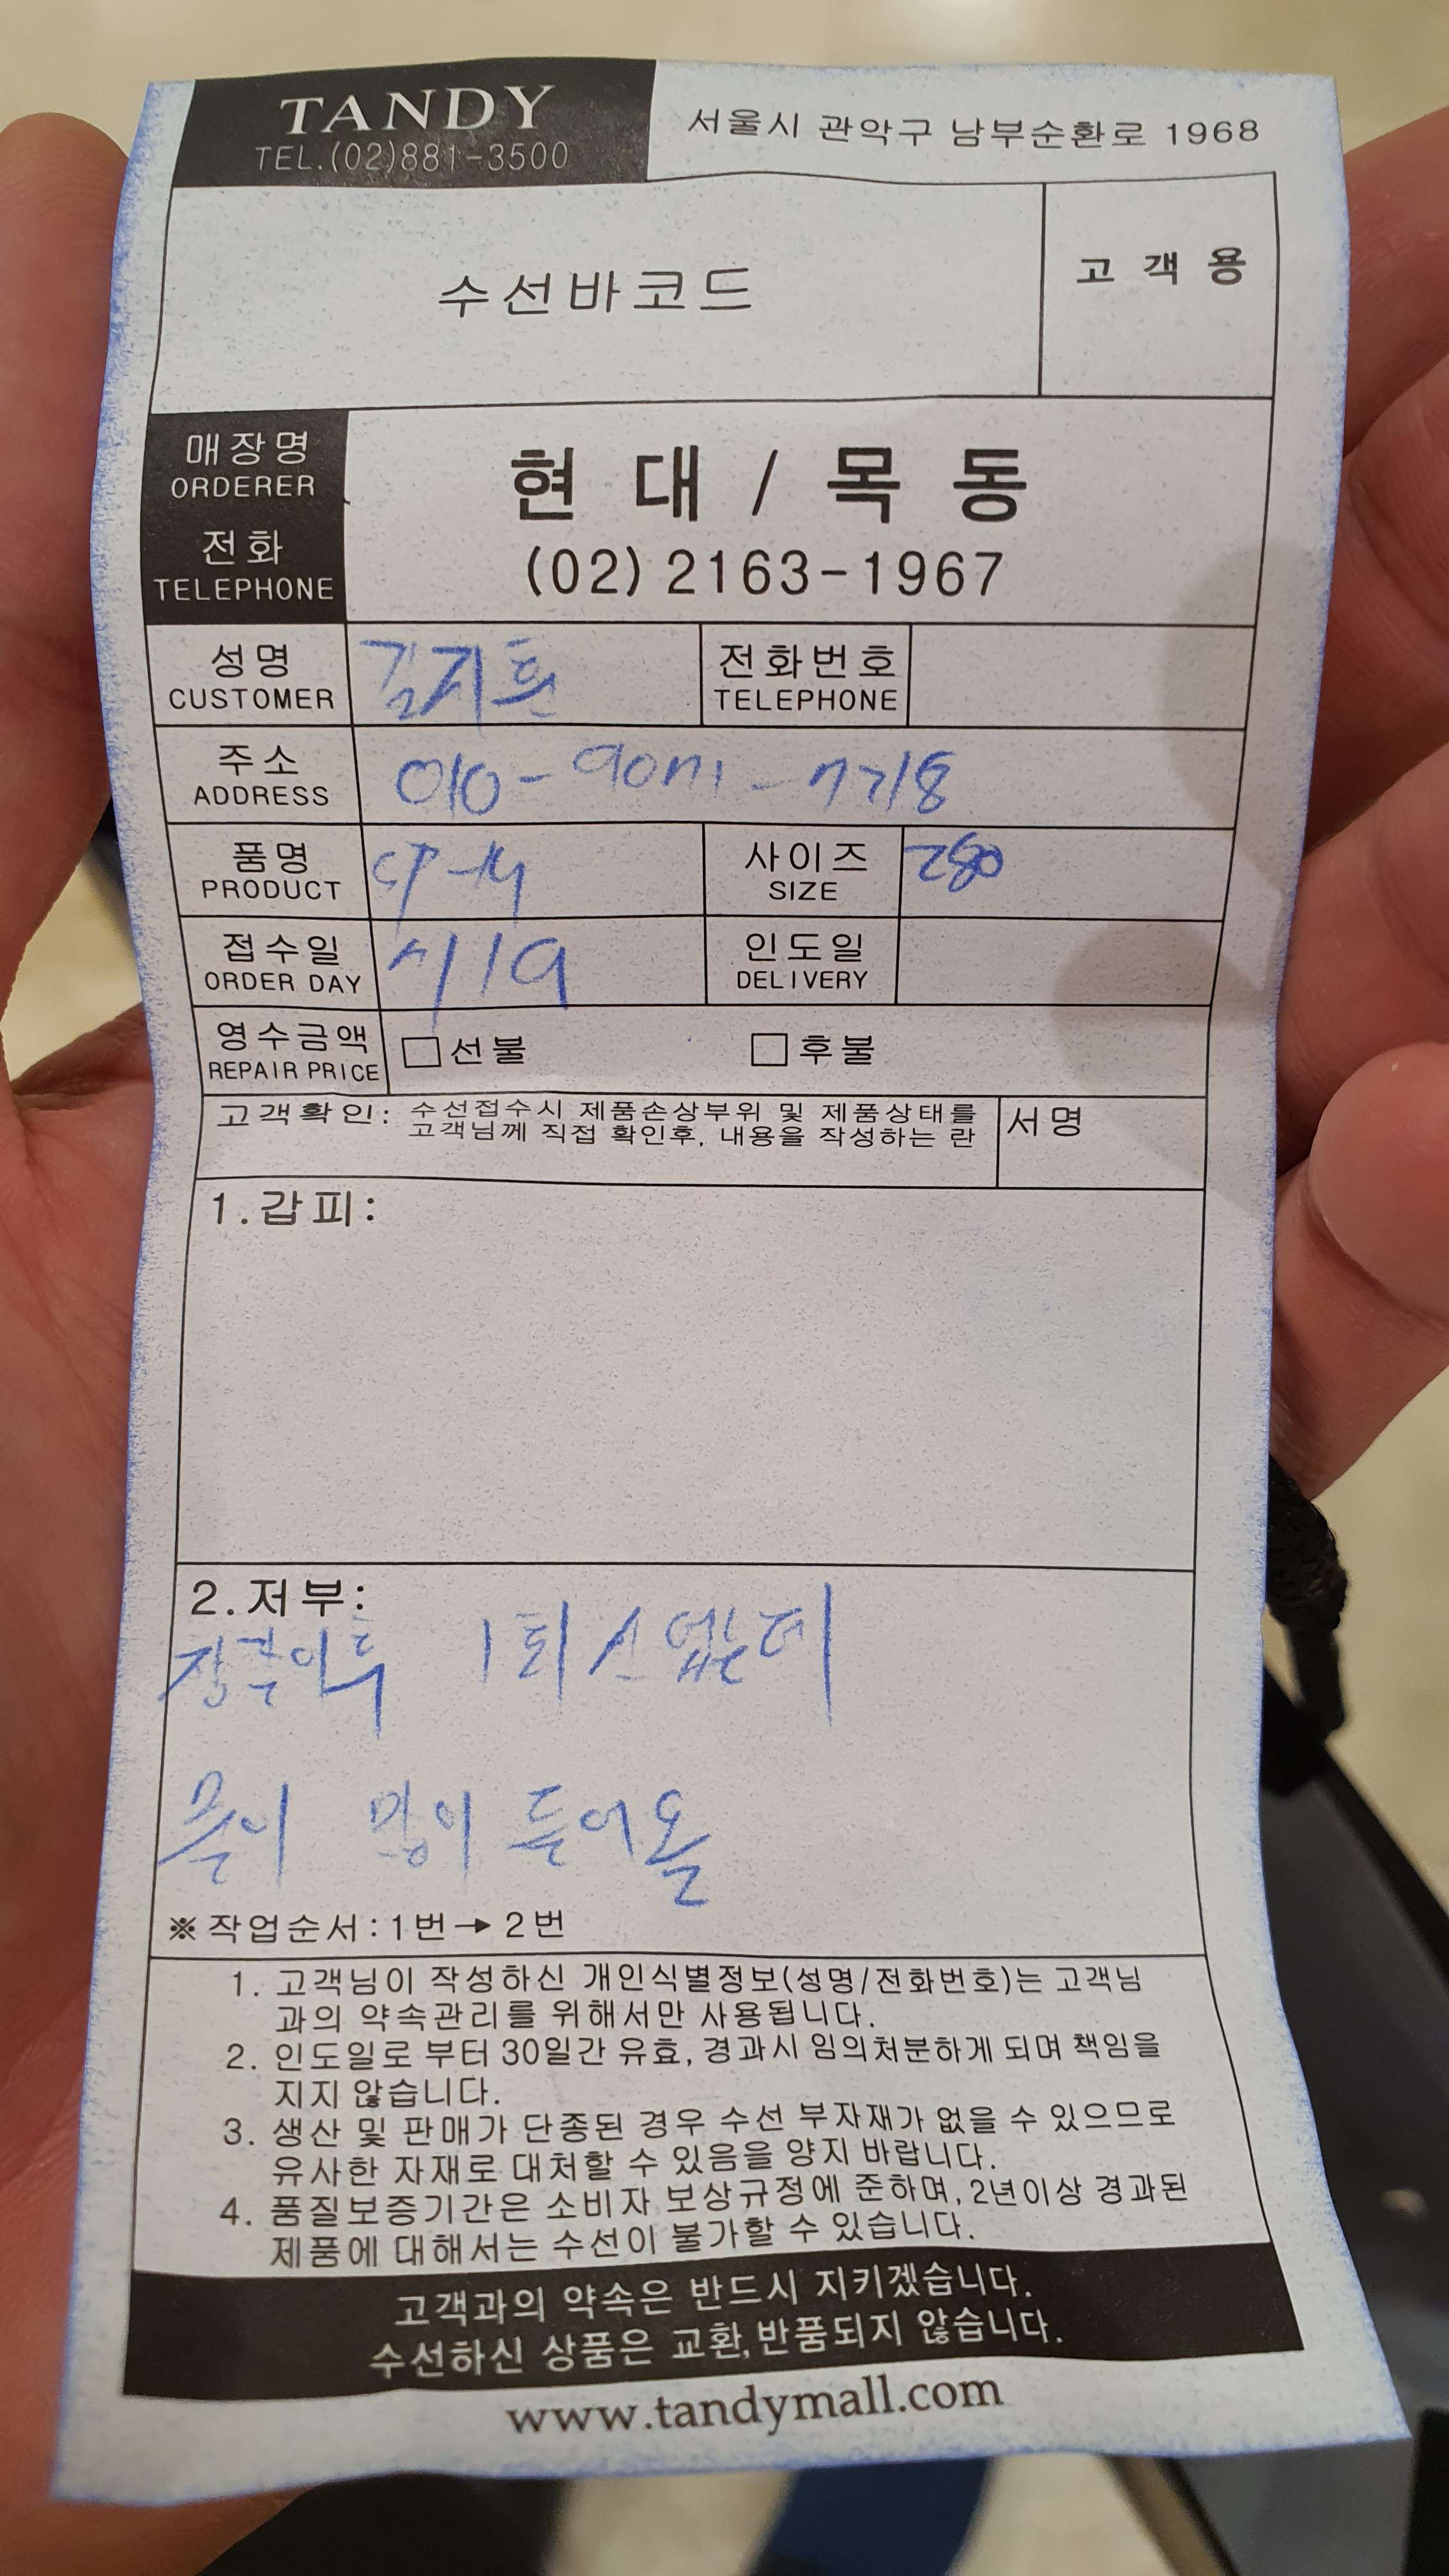 TANDY
TEL.(02)881-3500
서울시 관악구 남부순환로 1968
수선바코드
고객용
매장명
ORDERER
현대/목동
전화
TELEPHONE
(02)2163-1967
성명
CUSTOMER
김지훈
전화번호
TELEPHONE
주소
ADDRESS
010-
품명
PRODUCT
사이즈
SIZE
280
접수일
ORDER DAY
인도일
DELIVERY
영수금액
REPAIR PRICE
□선불
□후불
고객확인: 수선접수시 제품손상부위 및 제품상태를
고객님께 직접 확인후, 내용을 작성하는 란
서명
1.갑피:
2.저부:
이후 1회
많이 들어옴
※작업순서:1번→2번
1. 고객님이 작성하신 개인식별정보(성명/전화번호)는 고객님
과의 약속관리를 위해서만 사용됩니다.
2. 인도일로 부터 30일간 유효, 경과시 임의처분하게 되며 책임을
지지 않습니다.
3. 생산 및 판매가 단종된 경우 수선 부자재가 없을 수 있으므로
유사한 자재로 대처할 수 있음을 양지 바랍니다.
4. 품질보증기간은 소비자 보상규정에 준하며, 2년이상 경과된
제품에 대해서는 수선이 불가할 수 있습니다.
고객과의 약속은 반드시 지키겠습니다.
수선하신 상품은 교환,반품되지 않습니다.
www.tandymall.com